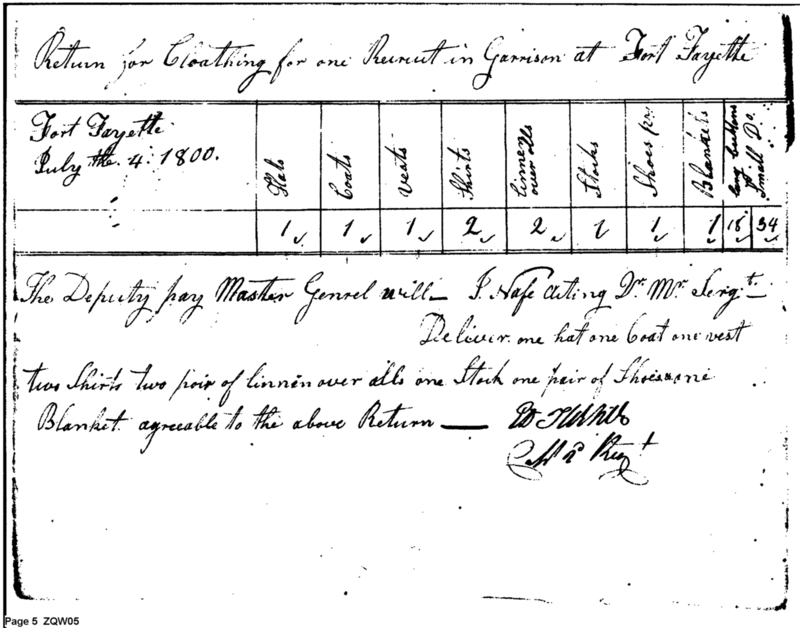 Return for Cloathing for one Recruit in Garrison at Fort Fayette
Fort Fayette
July the. 4. 1800.
Hats
Coats
Vests
Shirts
linnen over alls
Stocks
Shoes pr
Blankets
larg buttons
Small Do.
1 1 1 2 2 1 1 1 18 34
The Deputy pay Master Genrel will J. Nafe Acting Qr. Mr. Sergt.
Deliver one hat one Coat one vest
two Shirts two pair of linnen over alls one Stock one pair of Shoes one
Blanket agreeable to the above Return
Regt
Page 5 ZQW05